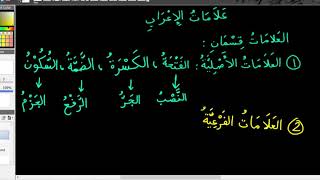 عَلَامَاتُ الإِعْرَابِ
العَلَامَاتُ قِسْمَانِ :
① العَلَامَاتُ الأَصْلِيَّةُ : الفَتْحَةُ ، الكَسْرَةُ ، الضَّمَّةُ ، السُّكُونُ
النَّصْبُ الجَرُّ الرَّفْعُ الجَزْمُ
② العَلَامَاتُ الفَرْعِيَّةُ